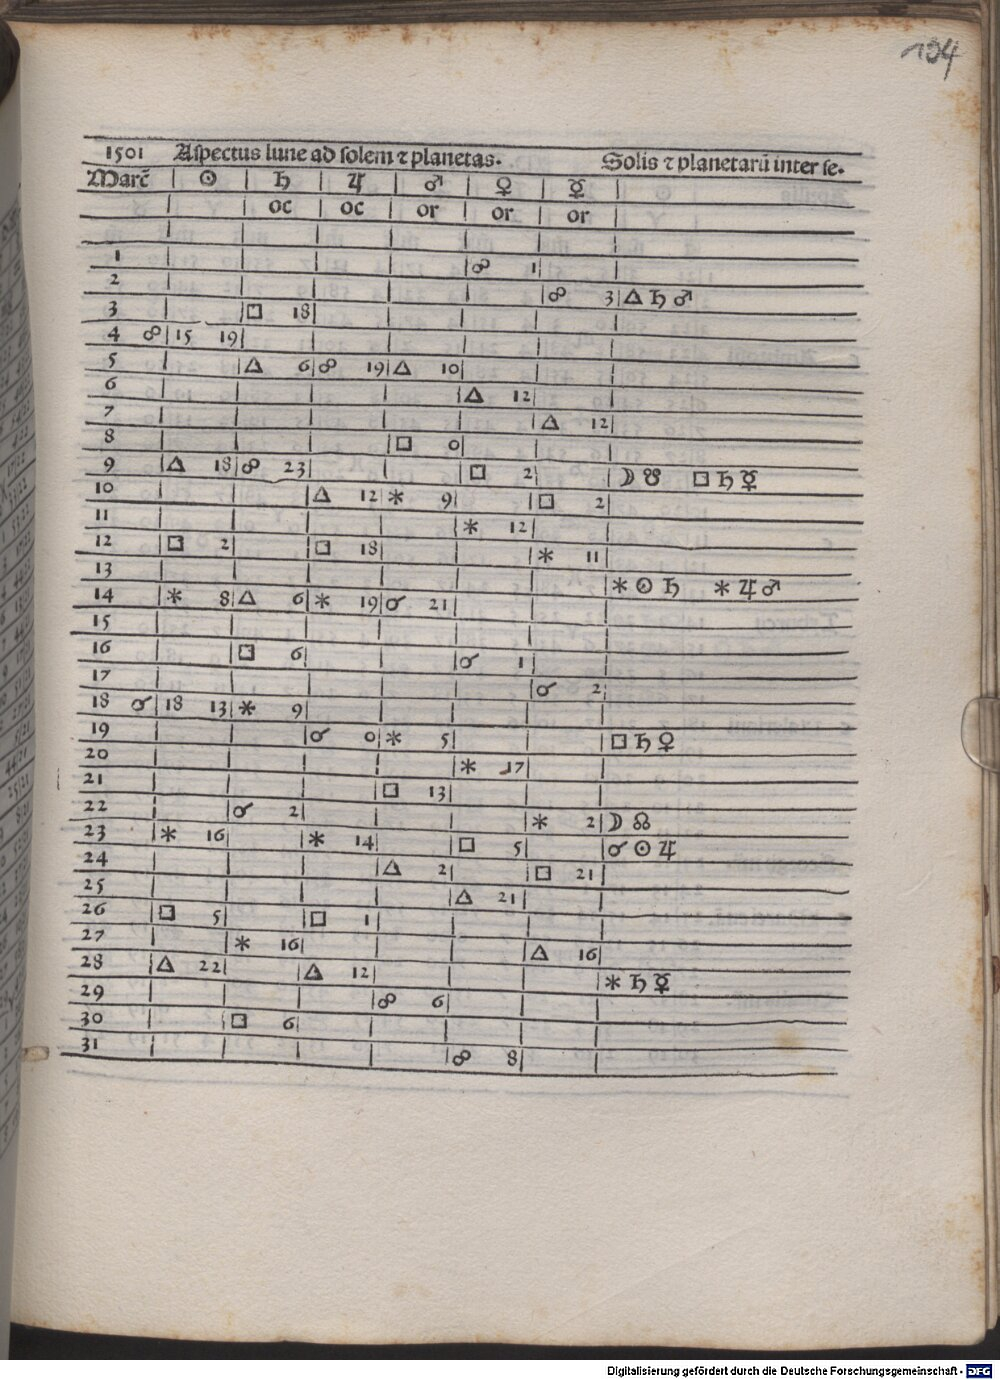 134
1501 Aspectus lune ad solem ⁊ planetas. Solis ⁊ planetarū inter se.
Marc̄ ☉ ♄ ♃ ♂ ♀ ☿
oc oc or or or
1 ☍ 1
2 ☍ 3 △ ♄ ♂
3 □ 18
4 ☍ 15 19
5 △ 6 ☍ 19 △ 10
6 △ 12
7 △ 12
8 □ 0
9 △ 18 ☍ 23 □ 2 ☽ ☋ □ ♄ ☿
10 △ 12 ⚹ 9 □ 2
11 ⚹ 12
12 □ 2 □ 18 ⚹ 11
13 ⚹ ☉ ♄ ⚹ ♃ ♂
14 ⚹ 8 △ 6 ⚹ 19 ☌ 21
15
16 □ 6 ☌ 1
17 ☌ 2
18 ☌ 18 13 ⚹ 9
19 ☌ 0 ⚹ 5 □ ♄ ♀
20 ⚹ 17
21 □ 13
22 ☌ 2 ⚹ 2 ☽ ☊
23 ⚹ 16 ⚹ 14 □ 5 ☌ ☉ ♃
24 △ 2 □ 21
25 △ 21
26 □ 5 □ 1
27 ⚹ 16 △ 16
28 △ 22 △ 12 ⚹ ♄ ☿
29 ☍ 6
30 □ 6
31 ☍ 8
Digitalisierung gefördert durch die Deutsche Forschungsgemeinschaft - DFG